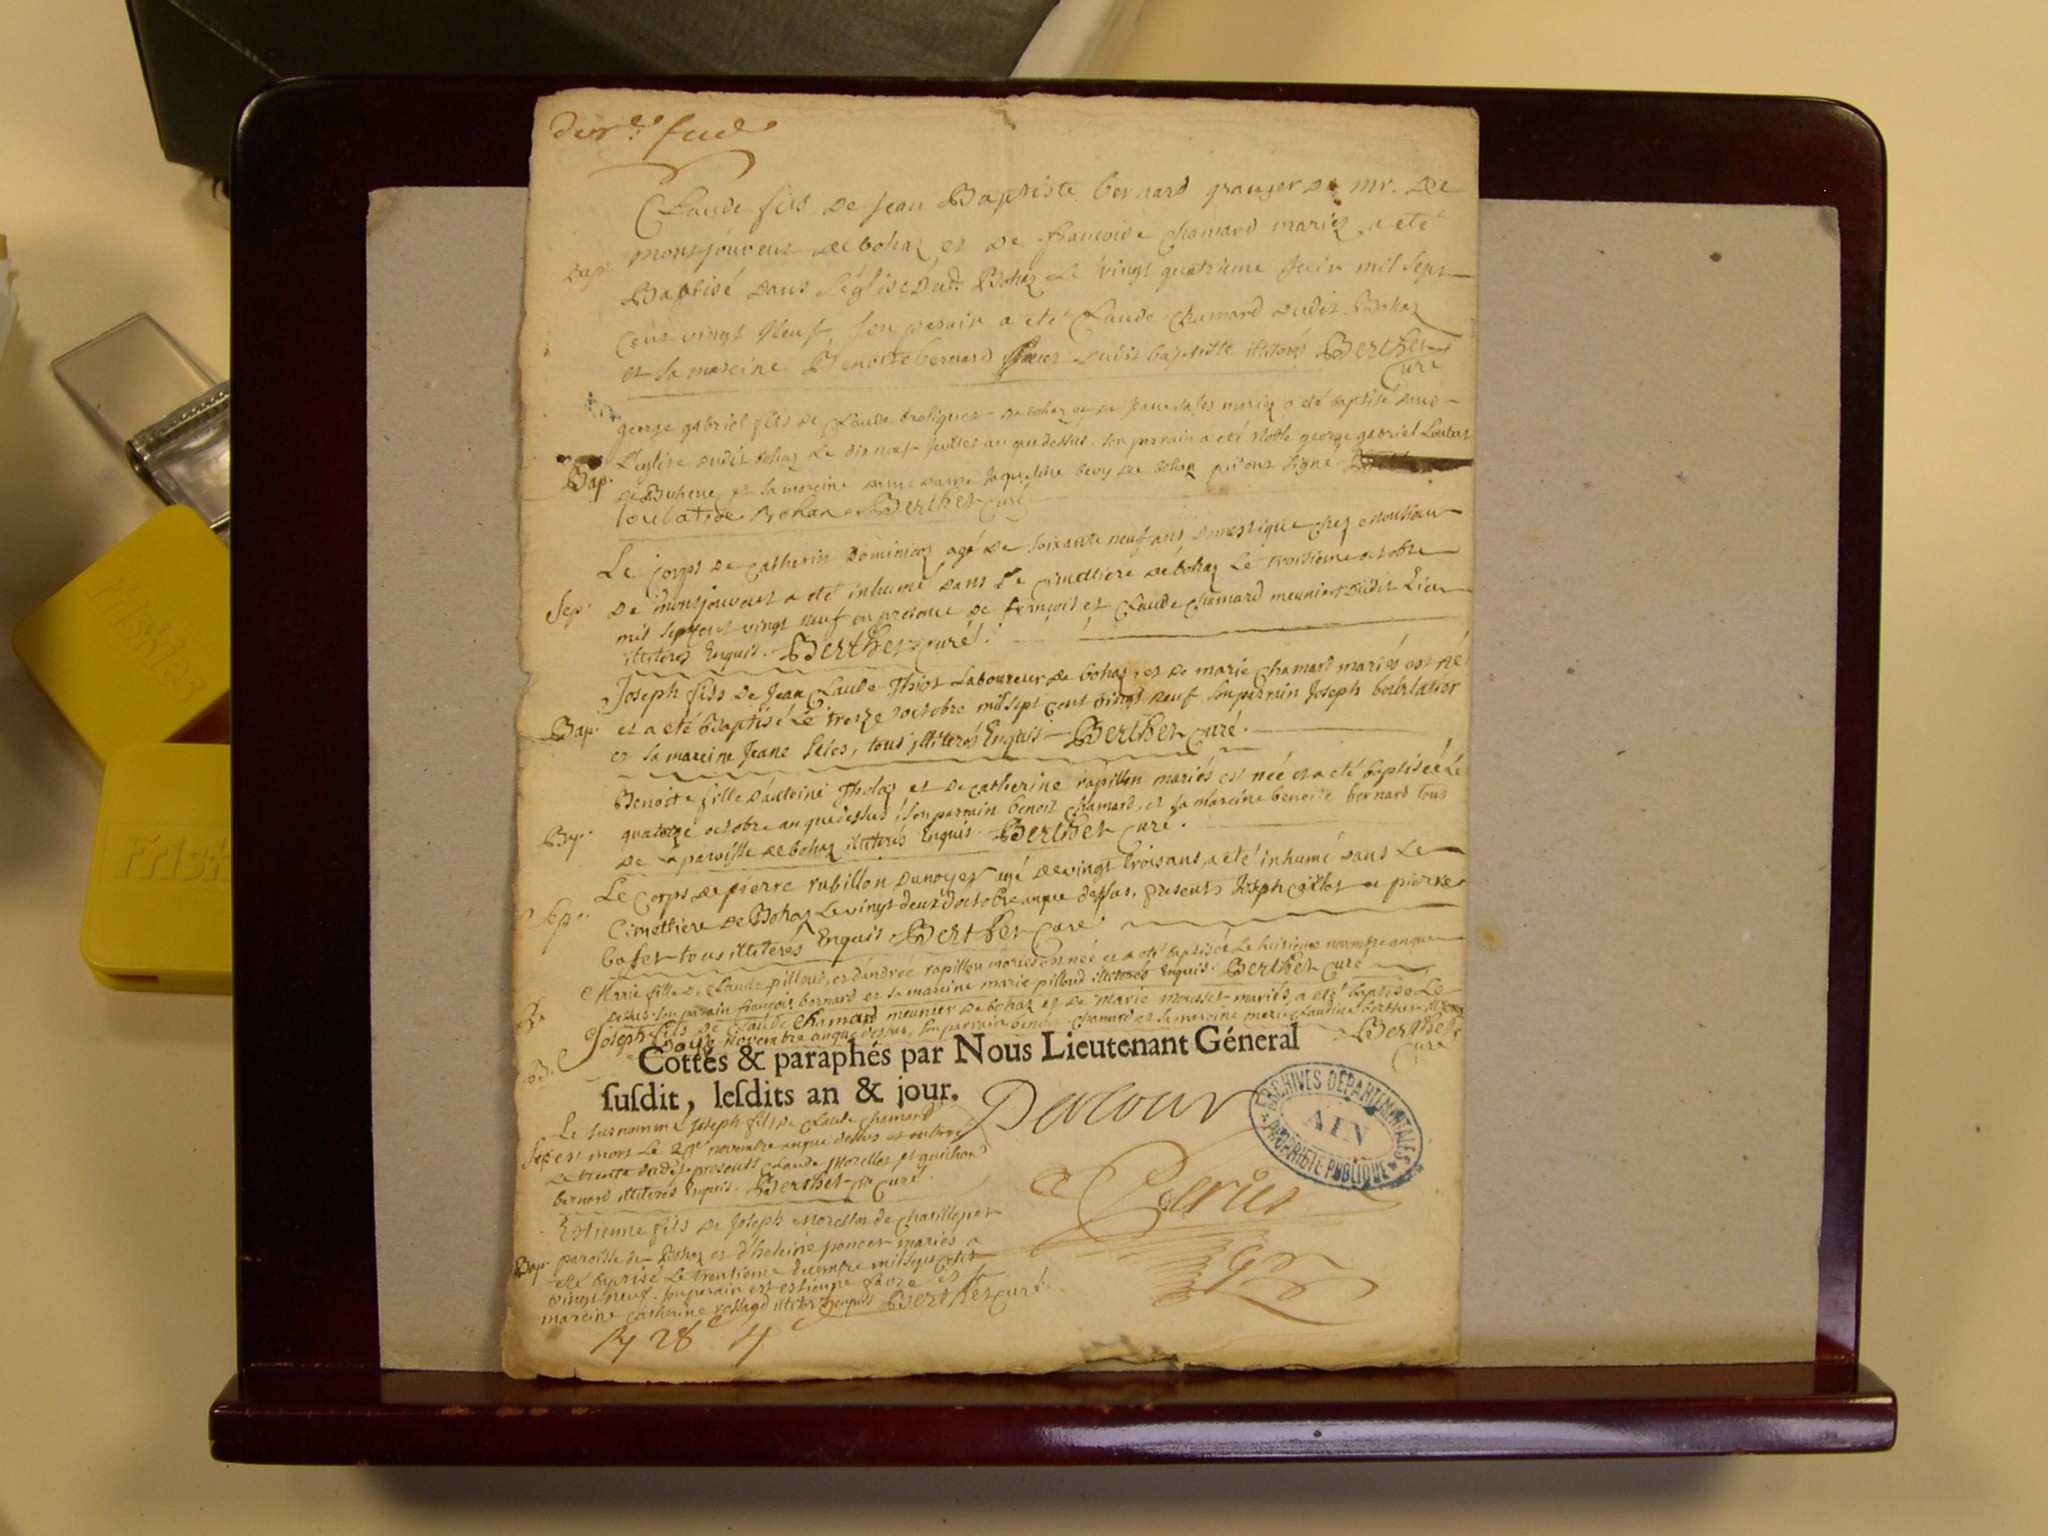 Claude fils de Jean Baptiste bernard granger de mr. de
Bap. montjouvent de bohaz et de francoise Chamard mariez a eté
Baptisé dans L'église dud. Bohaz Le vingt quatrieme Juin mil sept
Cent vingt Neuf, son parain a eté Claude Chamard dudit Bohaz
et sa mareine Benoite bernard dudit illiterés Berthet
Curé
george gabriel fils de Claude de bohaz et de Jeane mariez a eté baptisé dans
L'eglise dudit bohaz Le dix neuf Juillet an que dessus. son parrain a eté Noble george gabriel Loubat
Bap. de Bohan et sa mareine dame Jaqueline de bohan qui ont signé
loubat de Bohan Berthet Curé
Le Corps de Catherin Dominicoz agé de soixante neuf ans domestique chez monsieur
Sep. de montjouvent a eté inhumé dans Le Cimettiere de bohaz Le troisieme octobre
mil sept cent vingt neuf en presence de françois et Claude Chamard meuniers dudit Lieu
illiterés Enquis. Berthet Curé.
Joseph fils de Jean Claude Laboureur de bohaz et de marie Chamard mariés est né
Bap. et a eté Baptisé Le treize octobre mil sept cent vingt neuf son parrain Joseph
et sa mareine Jeane tous illiterés Enquis Berthet Curé.
Benoite fille d'antoine Tholaz et de Catherine rapillon mariés est née et a eté baptisée Le
Bap. quatorze octobre an que dessus son parrain benoit Chamard, et sa mareine benoite bernard tous
de La paroisse de bohaz illiterés Enquis. Berthet Curé.
Le Corps de pierre rubillon dunoyer agé de vingt trois ans, a eté inhumé dans Le
Sep. Cimettiere de Bohaz Le vingt deux d'octobre an que dessus. presents Joseph et pierre
tous illiterés Enquis Berthet Curé
Marie fille de Claude pilloud, et d'andrée rapillon mariés est née et a eté baptisée Le huitieme novembre an que
dessus. son parain françois bernard et sa mareine marie pilloud illiterés Enquis. Berthet Curé
Joseph fils de Claude Chamard meunier de bohaz et de marie mousset mariés, a eté baptisé Le
douze novembre an que dessus, son parrain benoit Chamard et sa mareine marie Claudine berthet
B. Berthet
Curé
Cottés & paraphés par Nous Lieutenant Géneral
susdit, lesdits an & jour.
Le susnommé Joseph fils de Claude Chamard
Sep. est mort Le 29e novembre an que dessus et enterré
Le trente dudit presents Claude Morellet et
bernard illiterés Enquis. Berthet Curé.
Estienne fils de Joseph Morellet de Chatillonet
Bap. paroisse de Bohaz et d'heleine poncet mariés a
eté baptisé Le trentieme decembre mil sept cent
vingt neuf. son parain est estienne favre et sa
mareine Catherine illiterés enquis Berthet Curé.
ARCHIVES DÉPARTEMENTALES
AIN
PROPRIÉTÉ PUBLIQUE
Friskies
Frisk